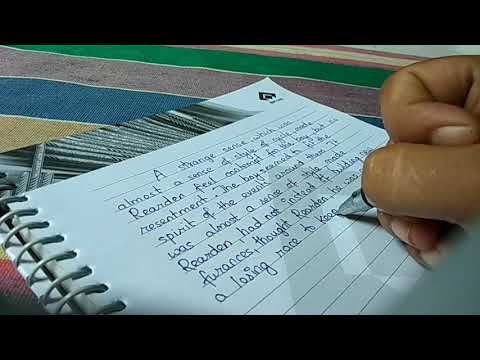 A strange sense which was
almost a sense of style made
Rearden feel contempt for the boy, but no
resentment. The boy seemed to fit the
spirit of the events around them. It
was almost a sense of style made
Rearden, had not instead of building
furances, thought Rearden, he was
a losing race to keep